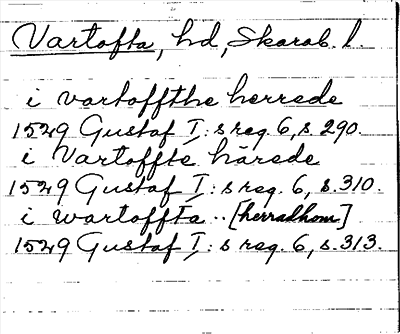 Vartofta, hd, Skarab. l.
i vartoffthe herrede
1529 Gustaf I:s reg. 6, s. 290.
i Vartoffte härede
1529 Gustaf I:s reg. 6, s. 310.
i wartoffta .. [herradhom]
1529 Gustaf I:s reg. 6, s. 313.